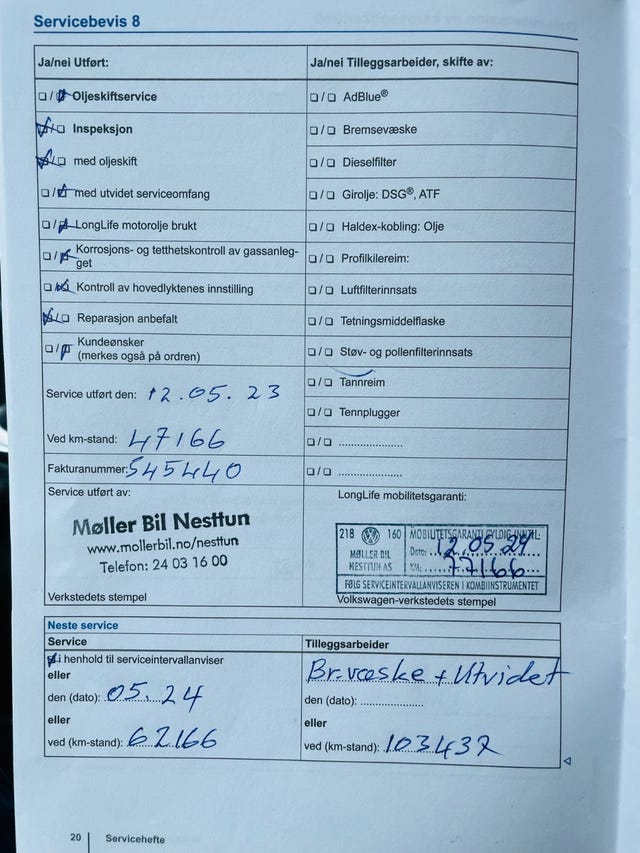 Servicebevis 8
Ja/nei Utført:
Ja/nei Tilleggsarbeider, skifte av:
Oljeskiftservice
AdBlue®
Inspeksjon
Bremsevæske
med oljeskift
Dieselfilter
med utvidet serviceomfang
Girolje: DSG®, ATF
LongLife motorolje brukt
Haldex-kobling: Olje
Korrosjons- og tetthetskontroll av gassanleg-
get
Profilkilereim:
Kontroll av hovedlyktenes innstilling
Luftfilterinnsats
Reparasjon anbefalt
Tetningsmiddelflaske
Kundeønsker
(merkes også på ordren)
Støv- og pollenfilterinnsats
Tannreim
Tennplugger
Service utført den: 12.05.23
Ved km-stand: 47166
Fakturanummer: 545440
Service utført av:
LongLife mobilitetsgaranti:
Møller Bil Nesttun
www.mollerbil.no/nesttun
Telefon: 24 03 16 00
218 VW 160
MØLLER BIL
NESTTUN AS
MOBILITETSGARANTI GYLDIG INNTIL:
Dato: 12.05.24
KM: 77166
FØLG SERVICEINTERVALLANVISEREN I KOMBIINSTRUMENTET
Verkstedets stempel
Volkswagen-verkstedets stempel
Neste service
Service
Tilleggsarbeider
i henhold til serviceintervallanviser
eller
den (dato): 05.24
eller
ved (km-stand): 62166
Br.væske + Utvidet
den (dato):
eller
ved (km-stand): 103432
20 Servicehefte